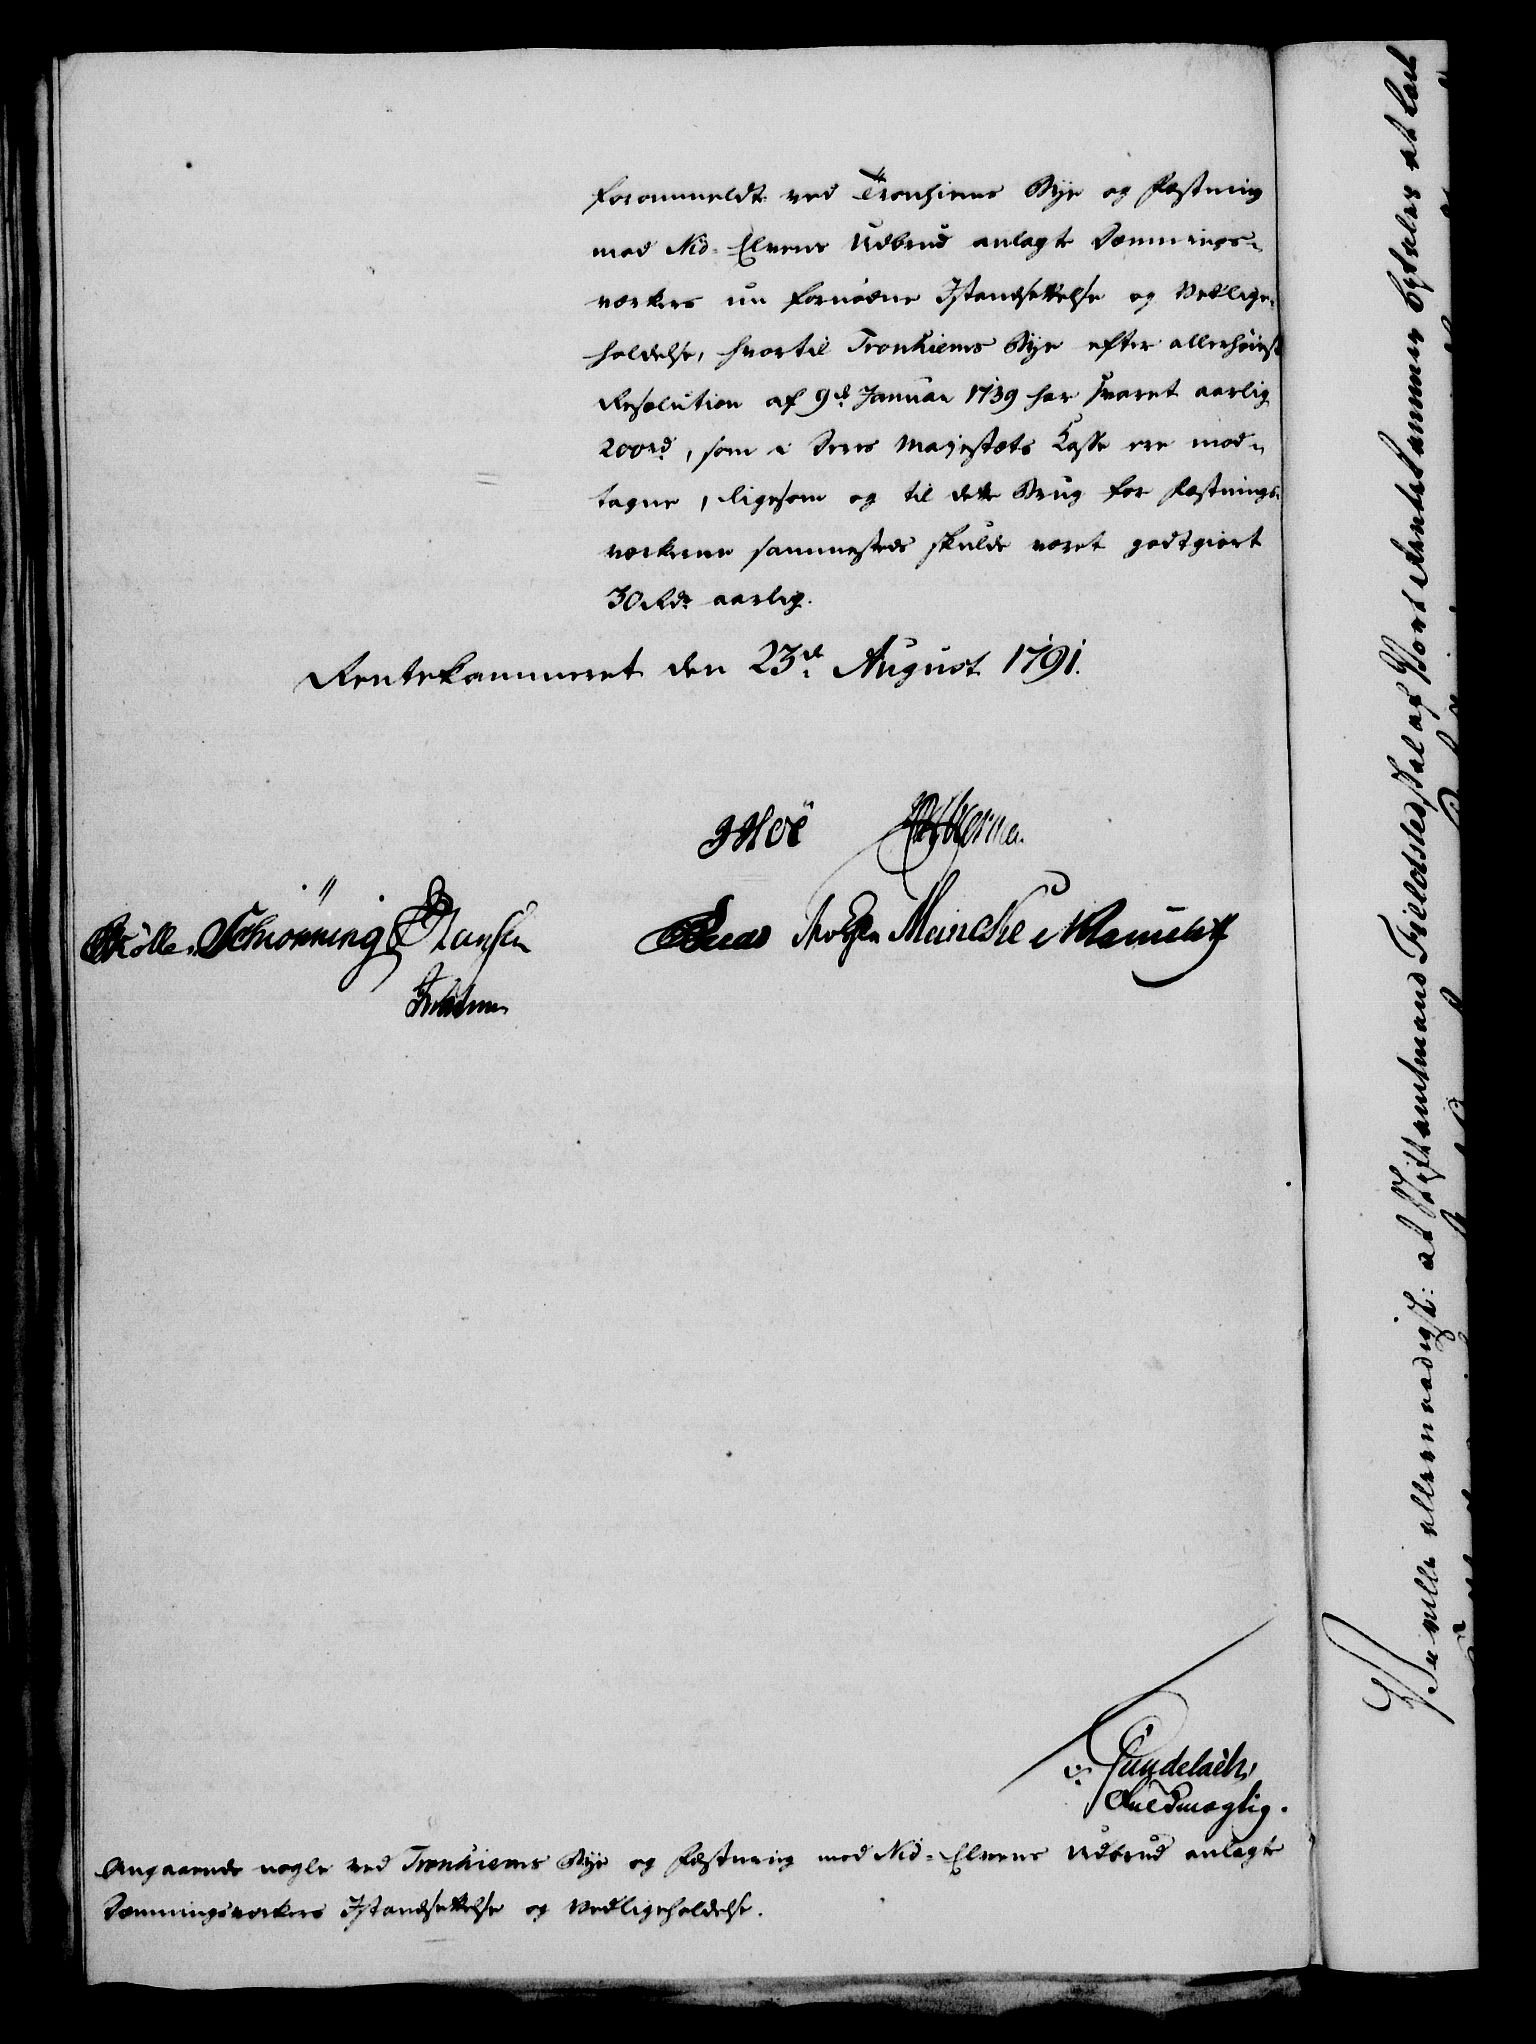 forommeldte ved Tronhiems Bye og Fæstning
mod Nid-Elvens Udbrud anlagte Dæmnings-
værkers nu fornødne Istandsættelse og Vedlige-
holdelse, hvortil Tronhiems Bye efter allerhøieste
Resolution af 9de Januar 1739 har svaret aarlig
200rd, som i Deres Majestæts Kasse ere mod-
tagne, ligesom og til dette Brug for Fæstnings-
værkerne sammesteds skulde været godtgiort
30 Rdr aarlig.
Rentekammeret den 23de August 1791.
JHoë
Mølle. Schiønning Hansen
Meincke
Gundelach,
Fuldmægtig.
Angaaende nogle ved Tronhiems Bye og Fæstning mod Nid-Elvens Udbrud anlagte
Dæmningsværkers Istandsættelse og Vedligeholdelse.
Vi ville allernaadigst: at Stiftamtmand Fieldsted skal af Vort Rentekammer befales at lade